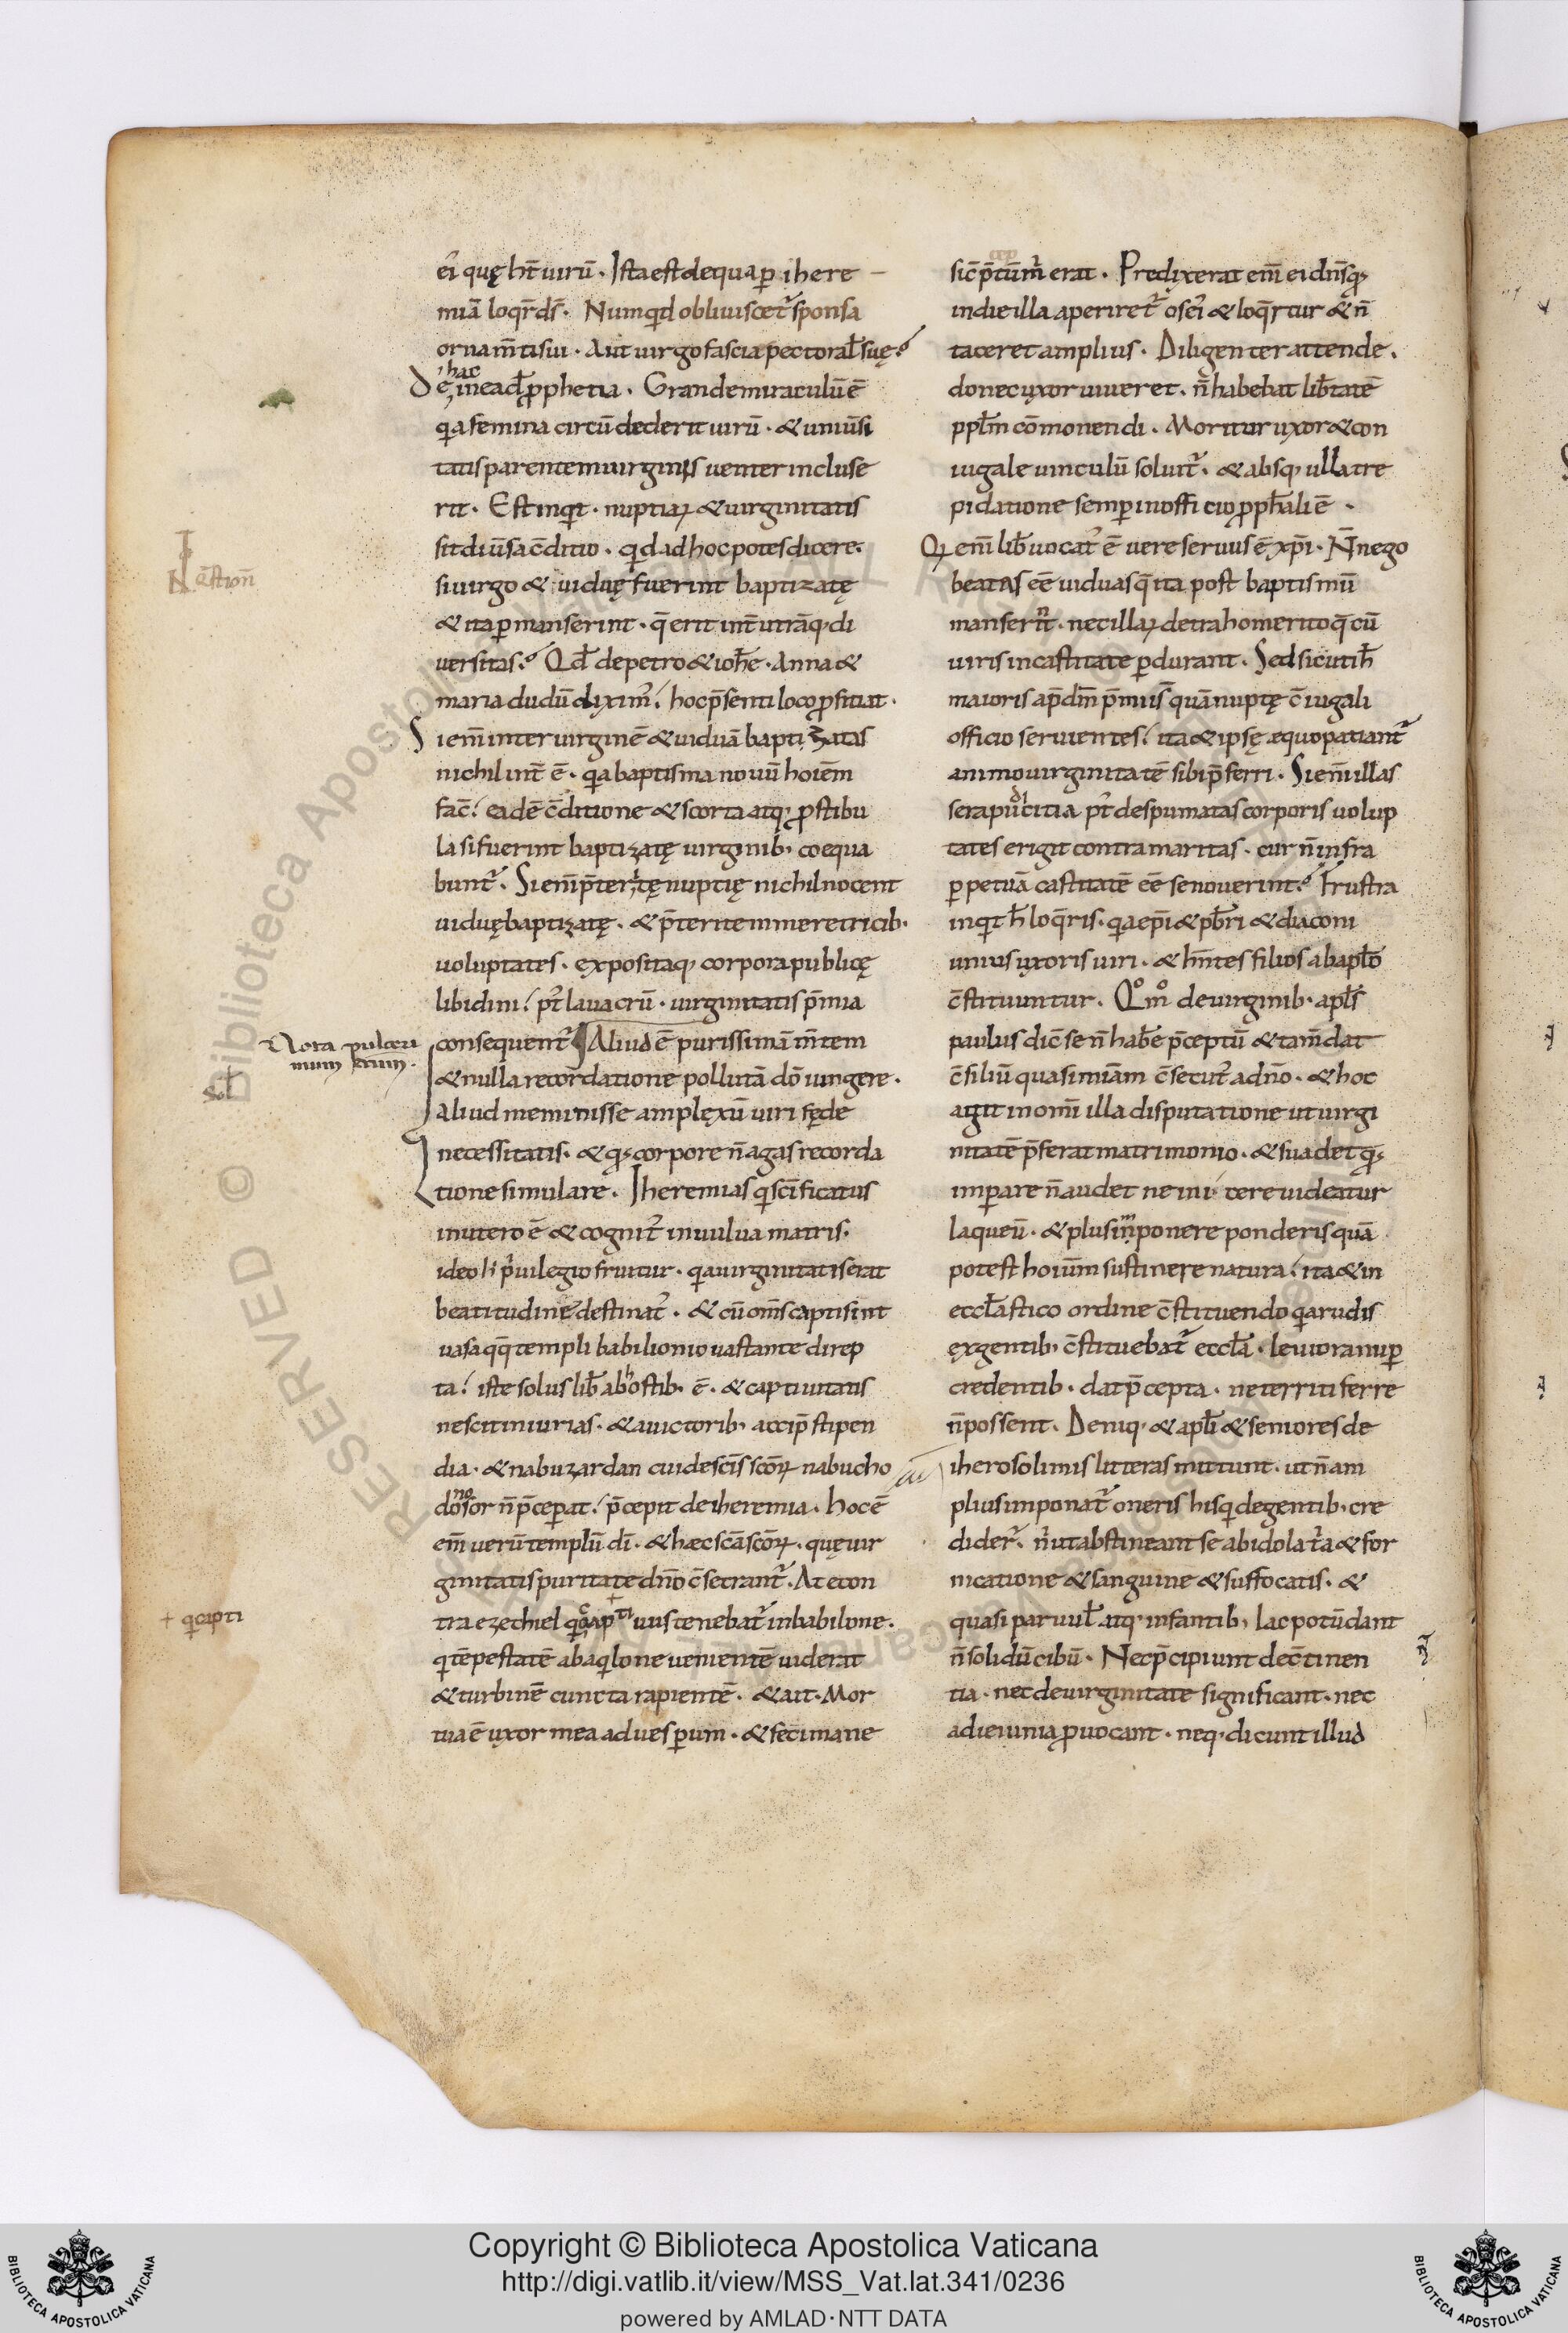 ei quę ht̄ uirū. Ista est de qua ꝑ ihere
miā loqr̄ ds̄. Numqͥd obliuiscet᷑ sponsa
ornam̄ti sui. Aut uirgo fascia pectoral̄ suę?
hac
De in ead̄ ꝓphetia. Grande miraculū ē
qͥa femina circūdederit uirū. & uniūsi
tatis parentem uirginis uenter incluse
rit. Est inqͥt. nuptiaꝝ & uirginitatis
sit diūsa c̄ditio. qͥd ad hoc potes dicere.
si uirgo & uiduę fuerint baptizatę
& ita ꝑmanserint. q̄ erit int̄ utrāq; di
uersitas? Qd̄ de petro & ioh̄e. Anna &
maria dudū diximꝰ. hoc p̄senti loco ꝓficiat.
Si eni̅ inter uirginē & uiduā baptizatas
nichil int̄ ē. qͥa baptisma nouū hoi̅em
fac̄. eadē c̄ditione & scorta atq; ꝓstibu
la si fuerint baptizatę uirginib; coequa
bunt᷑. Si eni̅ p̄teritę nuptię nichil nocent
uiduę baptizatę. & p̄terite meretricib;
uoluptates. expositaq; corpora publicę
libidini. pꝰt lauacrū. uirginitatis p̄mia
consequent᷑. Aliud ē purissimā m̄tem
& nulla recordatione pollutā dō iungere.
aliud meminisse amplexū uiri fęde
necessitatis. & qͥ; corpore n̄ agas recorda
tione simulare. Iheremias qͥ sc̄ificatus
in utero ē & cognitꝰ in uulua matris.
ideo h̄ pͥuilegio fruitur. qͥa uirginitatis erat
beatitudine destinatꝰ. & cū om̄s capti sint
uasa qq̄ templi babilionio uastante direp
ta. iste solus lib̄ ab hostib; ē. & captiuitatis
nescit iniurias. & a uictorib; accip̄ stipen
dia. & nabuzardan cui de sc̄is sc̄oꝝ nabucho
donosor n̄ p̄ceꝑat. p̄cepit de iheremia. Hoc ē
eni̅ uerū templū dī. & hæc sc̄a sc̄oꝝ. quę uir
ginitatis puritate dn̄o c̄secrant᷑. At econ
tra ezechiel qͥ captiuus tenebat᷑ in babilone.
qͥ tēpestatē ab aqͥlone uenientē uiderat
& turbinē cuncta rapientē. & ait. Mor
tua ē uxor mea ad uesꝑum. & feci mane
sic p̄ceptū m̄ erat. Predixerat eni̅ ei dn̄s qͥ;
in die illa aperiret᷑ os ei & loqr̄tur & n̄
taceret amplius. Diligenter attende.
donec uxor uiueret. n̄ habebat lib̄tatē
ppl̄m cōmonendi. Moritur uxor & con
iugale uinculū soluit᷑. & absq; ulla tre
pidatione semꝑ in officio ꝓph̄ali ē.
Qͥ eni̅ lib̄ uocatꝰ ē uere seruus ē xp̄i. N̄ nego
beatas eē uiduas q̄ ita post baptismū
manserint. nec illaꝝ detraho merito q̄ cū
uiris in castitate ꝑdurant. Sed sicuti h̄
maioris ap̄ dm̄ p̄mii s̄ quā nuptę c̄iugali
officio seruientes. ita & ipsę æquo patiant᷑
animo uirginitatē sibi p̄ferri. Si eni̅ illas
sera pudicitia pꝰt despumatas corporis uolup
tates erigit contra maritas. cur n̄ infra
ꝑpetuā castitatē eē se nouerint? Frustra
inqͥt h̄ loqr̄is. qͥa ep̄i & pb̄ri & diaconi
unius uxoris uiri. & hn̄tes filios ab apl̄o
c̄stituuntur. Qͦmͦ de uirginib; apl̄s
paulus dic̄ se n̄ hab̄e p̄ceptū & tam̄ dat
c̄siliū quasi mi̅am c̄secutꝰ a dn̄o. & hoc
agit in omi̅ illa disputatione ut uirgi
nitatē p̄ferat matrimonio. & suadet qͥ;
imꝑare n̄ audet ne inicere uideatur
laqueū. & plus imponere ponderis quā
potest hoiūm sustinere natura. ita & in
eccl̄astico ordine c̄stituendo qͥa rudis
ex gentib; c̄stituebat᷑ eccl̄a. leuiora nuꝑ
credentib; dat p̄cepta. ne territi ferre
n̄ possent. Deniq; & apl̄i & seniores de
iherosolimis litteras mittunt. ut n̄ am
plius imponat᷑ oneris his qͥ de gentib; cre
diderꝰ. n̄ ut abstineant se ab idolatͥa & for
nicatione & sanguine & suffocatis. &
quasi paruul̄ atq; infantib; lac potū dant
n̄ solidū cibū. Nec p̄cipiunt de c̄tinen
tia. nec de uirginitate significant. nec
ad ieiunia ꝓuocant. neq; dicunt illud
Nota pulceri
mum
+ qͥ capti
RESERVED © Biblioteca Apostolica Vaticana ALL RIGHTS
Copyright © Biblioteca Apostolica Vaticana
http://digi.vatlib.it/view/MSS_Vat.lat.341/0236
powered by AMLAD·NTT DATA
BIBLIOTECA APOSTOLICA VATICANA
BIBLIOTECA APOSTOLICA VATICANA